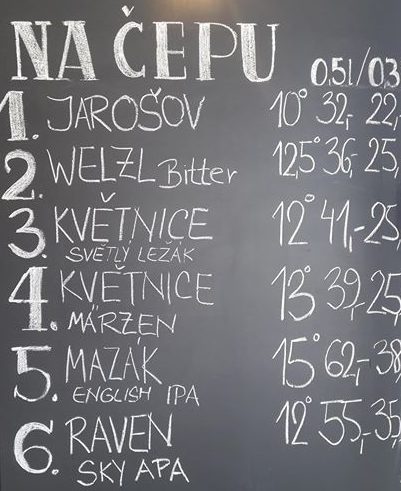 NA ČEPU 0.5l/03
1. JAROŠOV 10° 32,- 22,
2. WELZL Bitter 12,5° 36,- 25,
3. KVĚTNICE 12° 41,- 25,
SVĚTLÝ LEŽÁK
4. KVĚTNICE 13° 39,- 25,
MÄRZEN
5. MAZÁK 15° 62,- 38,
ENGLISH IPA
6. RAVEN 12° 55,- 35,
SKY APA